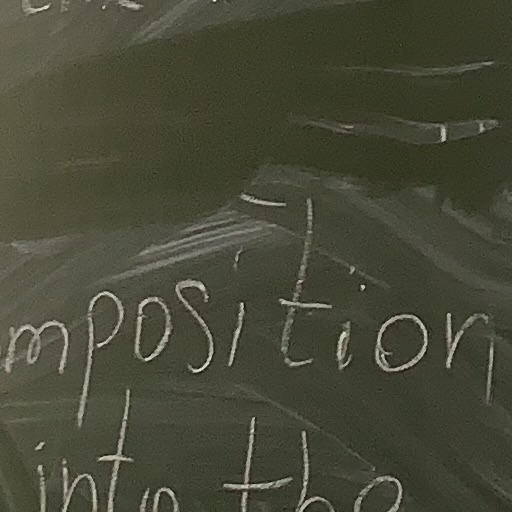 mposition
into the